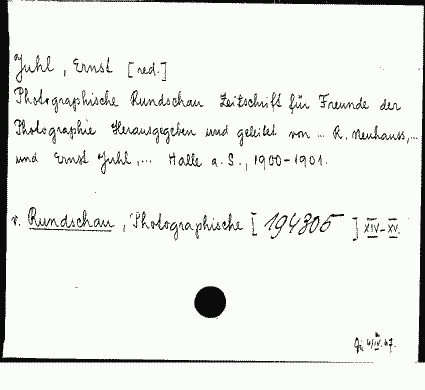 Juhl, Ernst [red.]
Photographische Rundschau Zeitschrift für Freunde der
Photographie Herausgegeben und geleitet von ... R. Neuhauss,...
und Ernst Juhl,... Halle a. S., 1900-1901.
v. Rundschau, Photographische [194305] XIV-XV.